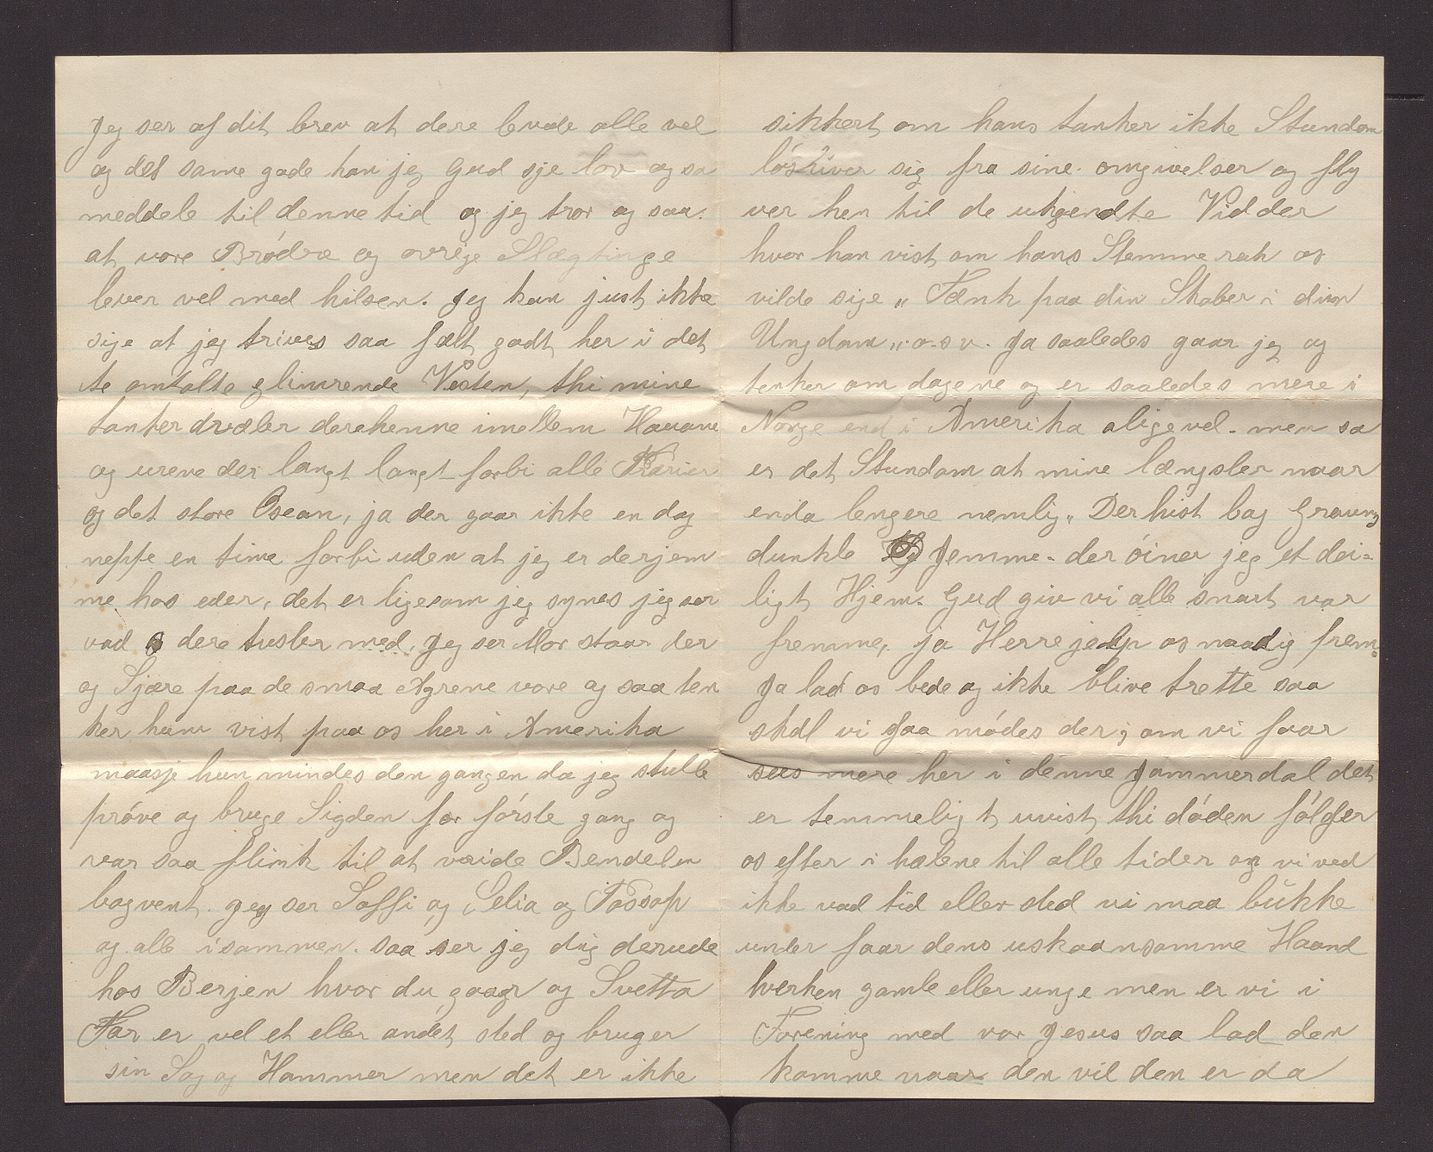 Jeg ser af dit brev at dere levde alle vel
og det same gode kan jeg Gud sje lov og sa
meddele til denne tid og jeg tror og saa.
at vore Brødre og øvrige Slægtinge
lever vel med hilsen. Jeg kan just ikke
sige at jeg trives saa fælt godt her i det
te omtalte glimrende Vesten, thi mine
tanker dvæler derehenne imellem Hauane
og urene der langt langt forbi alle Prærier
og det store Osean, ja der gaar ikke en dag
neppe en time forbi uden at jeg er derjem
me hos eder, det er ligesom jeg synes jeg ser
vad dere tusler med. Jeg ser Mor staar der
og Sjære paa de smaa Agrene vore og saa ten
ker hun vist paa os her i Amerika
maasje hun mindes den gangen da jeg skulle
prøve og bruge Sigden for første gang og
var saa flink til at vride Bendelen
bagvent. Jeg ser Soffi og Selia og Tossop
og alle isammen. saa ser jeg dig derude
hos Berjen hvor du gaar og Svetta
Far er vel et eller andet sted og bruger
sin Sag og Hammer men det er ikke
sikkert om hans tanker ikke Stundom
løsriver sig fra sine omgivelser og fly
ver hen til de utjendte Vidder
hvor han vist om hans Stemme rak os
vilde sige „ Tænk paa din Skaber i din
Ungdom „.o.s.v. Ja saaledes gaar jeg og
tenker om dagene og er saaledes mere i
Norge end i Amerika aligevel. men sa
er det Stundom at mine længsler naar
enda lengere nemlig „ Der hist bag Gravens
dunkle Jemme. der øiner jeg et dei-
ligt Hjem. Gud giv vi alle snart var
fremme, ja Herre jelp os naadig frem.
Ja lad os bede og ikke blive trette saa
skal vi faa mødes der; om vi faar
sees mere her i denne Jammerdal det
er temmeligt uvist, thi døden følger
os efter i hælene til alle tider og vi ved
ikke vad tid eller sted vi maa bukke
under faar dens uskaansomme Haand
hverken gamle eller unge men er vi i
Forening med vor Jesus saa lad den
komme naar den vil den er da